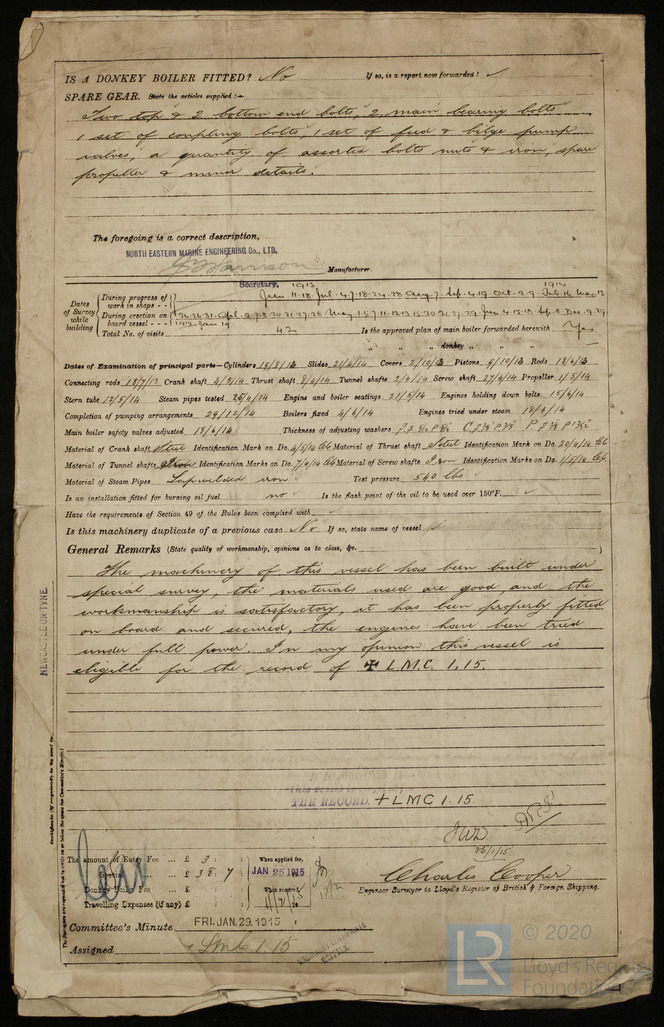 IS A DONKEY BOILER FITTED? No If so, is a report now forwarded? ✓
SPARE GEAR. State the articles supplied:—
Two top & 2 bottom end bolts, 2 main bearing bolts
1 set of coupling bolts, 1 set of feed & bilge pump
valves, a quantity of assorted bolts nuts & iron, spare
propeller & minor details.
The foregoing is a correct description,
NORTH EASTERN MARINE ENGINEERING Co., LTD.
Manufacturer.
Secretary, 1913 1914
Dates of Survey while building
During progress of work in shops - - Jun 11.18 Jul. 4.7.18.24.28 Aug.7 Sep. 4.19 Oct. 2.9
During erection on board vessel - - -
Total No. of visits 42 Is the approved plan of main boiler forwarded herewith Yes
" " " donkey " " "
Dates of Examination of principal parts—Cylinders Slides 21/4/14 Covers 2/10/13 Pistons 9/10/13 Rods 18/6/13
Connecting rods 18/7/13 Crank shaft 4/3/14 Thrust shaft Tunnel shafts 2/4/14 Screw shaft 27/4/14 Propeller 1/5/14
Stern tube 12/5/14 Steam pipes tested 26/4/14 Engine and boiler seatings 21/5/14 Engines holding down bolts 18/6/14
Completion of pumping arrangements 29/12/14 Boilers fixed 4/6/14 Engines tried under steam 18/6/14
Main boiler safety valves adjusted 18/6/14 Thickness of adjusting washers
Material of Crank shaft Steel Identification Mark on Do. 4/5/14 Material of Thrust shaft Steel Identification Mark on Do. 20/4/14
Material of Tunnel shafts Iron Identification Marks on Do. 7/4/14 Material of Screw shafts Iron Identification Marks on Do. 1/5/14
Material of Steam Pipes Lapwelded iron Test pressure 540 lbs
Is an installation fitted for burning oil fuel no Is the flash point of the oil to be used over 150°F. ✓
Have the requirements of Section 49 of the Rules been complied with
Is this machinery duplicate of a previous case No If so, state name of vessel
General Remarks (State quality of workmanship, opinions as to class, &c.
The machinery of this vessel has been built under
special survey, the materials used are good, and the
workmanship is satisfactory, it has been properly fitted
on board and secured, the engines have been tried
under full power. In my opinion this vessel is
eligible for the record of ✠ LMC 1.15.
NEWCASTLE-ON-TYNE
THE RECORD. + LMC 1.15.
JWD
26/1/15
The amount of Entry Fee ... £ 3 : :
Special ... £ 38 : 7 :
Donkey Boiler Fee ... £ : :
Travelling Expenses (if any) £ : :
When applied for,
JAN 25 1915
When received,
Charles Cooper
Engineer Surveyor to Lloyd's Register of British & Foreign Shipping.
Committee's Minute FRI. JAN. 29. 1915
Assigned + Lmc 1.15
LR © 2020
Lloyd's Register
Foundation